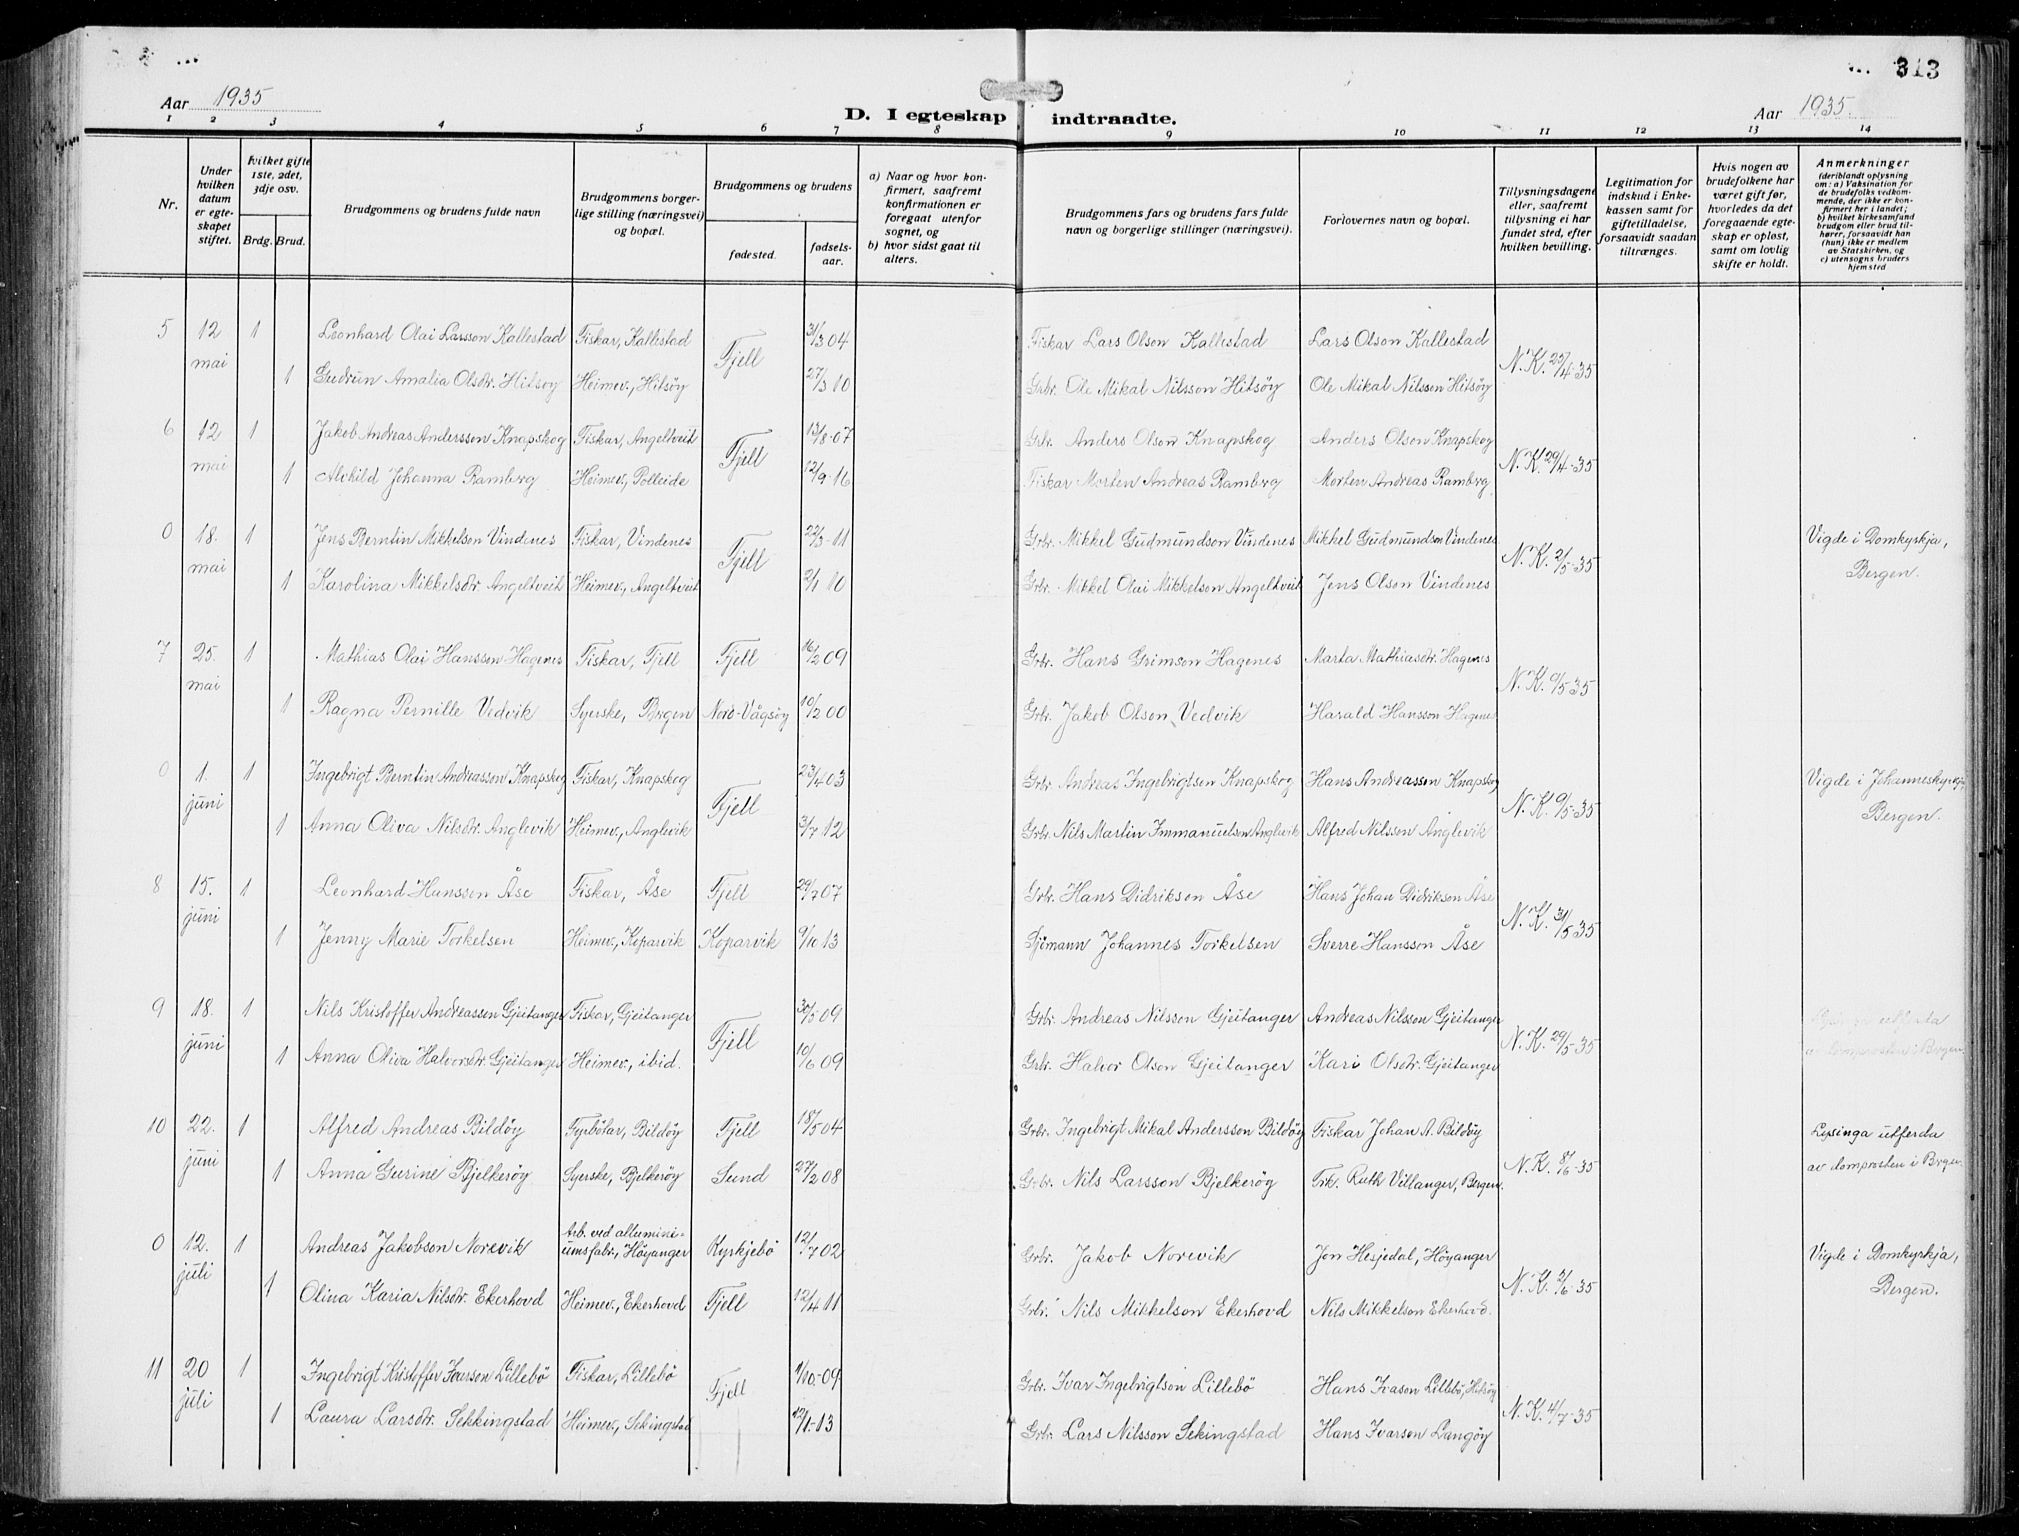 313
Aar 1935
D. I egteskap indtraadte.
Aar 1935.
1 2 3 4 5 6 7 8 9 10 11 12 13 14
Nr.
Under hvilken datum er egteskapet stiftet.
hvilket gifte 1ste, 2det, 3dje osv.
Brdg. Brud.
Brudgommens og brudens fulde navn
Brudgommens borgerlige stilling (næringsvei) og bopæl.
Brudgommens og brudens
fødested.
fødselsaar.
a) Naar og hvor konfirmert, saafremt konfirmationen er foregaat utenfor sognet, og
b) hvor sidst gaat til alters.
Brudgommens fars og brudens fars fulde navn og borgerlige stillinger (næringsvei).
Forlovernes navn og bopæl.
Tillysningsdagene eller, saafremt tillysning ei har fundet sted, efter hvilken bevilling.
Legitimation for indskud i Enkekassen samt for giftetilladelse, forsaavidt saadan tiltrænges.
Hvis nogen av brudefolkene har været gift før, hvorledes da det foregaaende egteskap er opløst, samt om lovlig skifte er holdt.
Anmerkninger (deriblandt oplysning om: a) Vaksination for de brudefolks vedkommende, der ikke er konfirmert her i landet; b) hvilket kirkesamfund brudgom eller brud tilhører, forsaavidt han (hun) ikke er medlem av Statskirken, og c) utensogns bruders hjemsted
5 12 mai 1 Leonhard Olai Larsson Kallestad Fiskar, Kallestad Fjell 31/3 04 Fiskar Lars Olson Kallestad Lars Olson Kallestad N.K. 25/4-35
1 Gudrun Amalia Olsdtr. Hitsøy Heimev., Hitsøy 27/3 10 Grbr. Ole Mikal Nilsson Hitsöy Ole Mikal Nilssen Hitsöy
6 12 mai 1 Jakob Andreas Andersson Knapskog Fiskar, Angeltveit Fjell 13/8-07 Grbr. Anders Olson Knapskog Anders Olson Knapskog N.K. 29/4-35
1 Alvhild Johanna Ramberg Heimev., Polleide 12/9-16 Fiskar Morten Andreas Ramberg Morten Andreas Ramberg
0 18. mai 1 Jens Berntin Mikkelson Vindenes Fiskar, Vindenes Fjell 22/3-11 Grbr. Mikkel Gudmundson Vindenes Mikkel Gudmundson Vindenes N.K. 2/5-35 Vigde i Domkyrkja, Bergen.
1 Karolina Mikkelsdtr. Angeltveit Heimev., Angeltveit 2/1 10 Grbr. Mikkel Olai Mikkelson Angeltveit Jens Olson Vindenes
7 25. mai 1 Mathias Olai Hanssen Hagenes Fiskar, Fjell Fjell 16/2 09 Grbr. Hans Grimson Hagenes Marta Mathiasdtr. Hagenes N.K. 9/5-35
1 Ragna Pernille Vedvik Syerske, Bergen Nord-Vågsöy 10/2 00 Grbr. Jakob Olson Vedvik Harald Hansson Hagenes
0 1. juni 1 Ingebrigt Berntin Andreasson Knapskog Fiskar, Knapskog Fjell 23/4 03 Grbr. Andreas Ingebrigtsen Knapskog Hans Andreassen Knapskog N.K. 9/5-35 Vigde i Johanneskyrkja, Bergen.
1 Anna Oliva Nilsdtr. Anglevik Heimev., Anglevik 3/7 12 Grbr. Nils Martin Immanuelsen Anglevik Alfred Nilssen Anglevik
8 15. juni 1 Leonhard Hansson Åse Fiskar, Åse Fjell 29/7 07 Grbr. Hans Didrikson Åse Hans Johan Didrikson Åse N.K. 31/5-35
1 Jenny Marie Torkelsen Heimev., Koparvik Koparvik 9/10 13 Sjömann Johannes Torkelsen Sverre Hansson Åse
9 18. juni 1 Nils Kristoffer Andreassen Gjeitanger Fiskar, Gjeitanger Fjell 30/5 09 Grbr. Andreas Nilsson Gjeitanger Andreas Nilsson Gjeitanger N.K. 29/5-35
1 Anna Oliva Halvorsdtr. Gjeitanger Heimev., ibid. 10/6 09 Grbr. Halvor Olson Gjeitanger Kari Olsdtr. Gjeitanger
10 22. juni 1 Alfred Andreas Bildöy Fyrbötar, Bildöy Fjell 18/5 04 Grbr. Ingebrigt Mikal Andersson Bildöy Fiskar Johan A. Bildöy N.K. 8/6-35 Lysinga utferda av domprosten i Bergen
1 Anna Gurine Bjelkeröy Syerske, Bjelkeröy Sund 27/2 08 Grbr. Nils Larsson Bjelkeröy Frk. Ruth Villanger, Bergen.
0 12. juli 1 Andreas Jakobson Norevik Arb. ved alluminiumsfabr., Höyanger Kyrkjebö 12/7 02 Grbr. Jakob Norevik Jon Hesjedal, Höyanger N.K. 2/6-35 Vigde i Domkyrkja, Bergen.
1 Olina Karia Nilsdtr. Ekerhovd Heimev., Ekerhovd Fjell 12/4 11 Grbr. Nils Mikkelson Ekerhovd Nils Mikkelson Ekerhovd.
11 20 juli 1 Ingebrigt Kristoffer Ivarson Lillebö Fiskar, Lillebö Fjell 1/10-09 Grbr. Ivar Ingebrigtson Lillebö Hans Ivason Lillebö, Hitsöy N.K. 4/7-35
1 Laura Larsdtr. Sekkingstad Heimev., Sekingstad 12/1-13 Grbr. Lars Nilsson Sekingstad Hans Ivarson Langöy